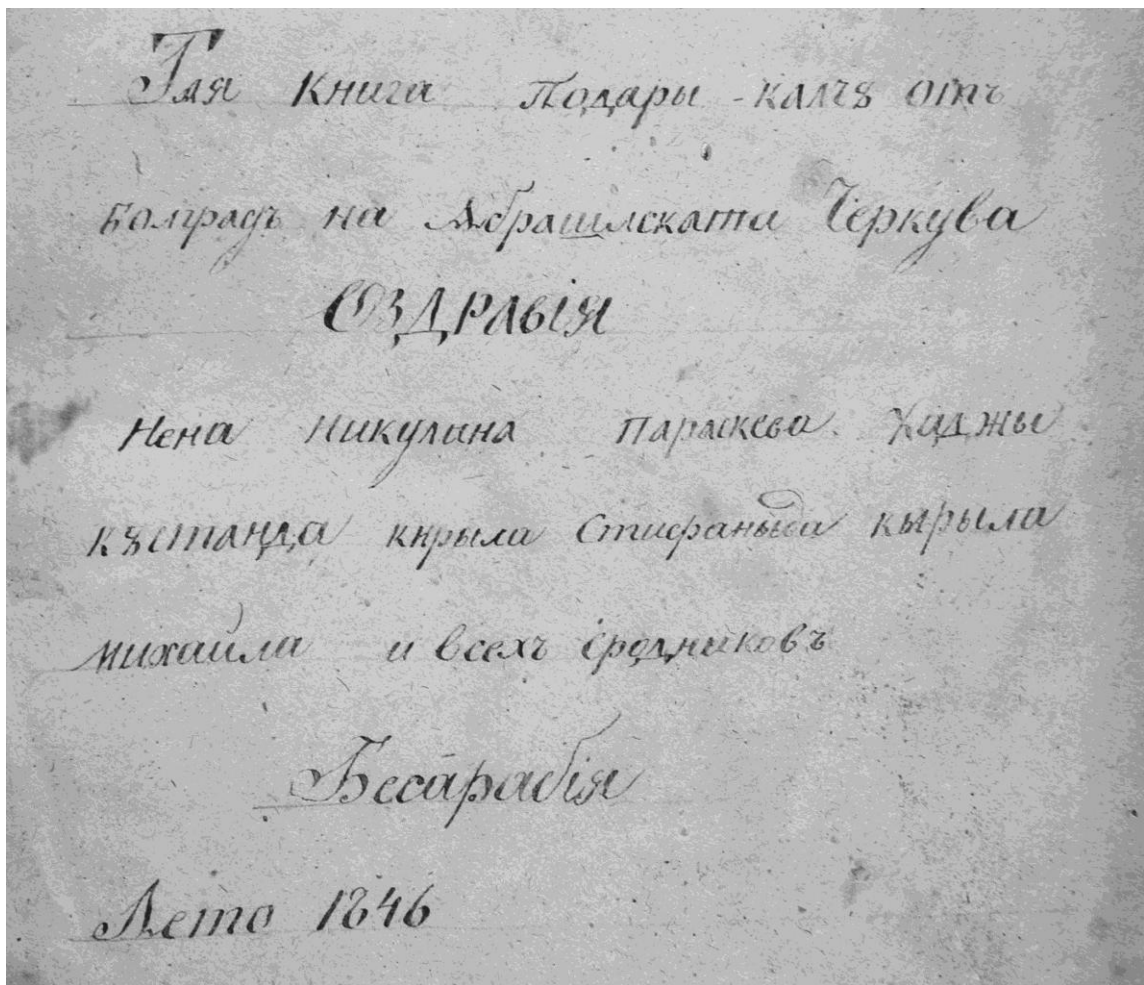 Тая книга Подары - калчꙋ отъ
Болградъ на Абрашлската Черкува
СОЗДРАВІЯ
Нена Никулина Параскева. Хаджы
кꙋстанда кирыла Стифаныда кырыла
михаила и всехъ сродниковъ
Бесарабія
Лето 1846